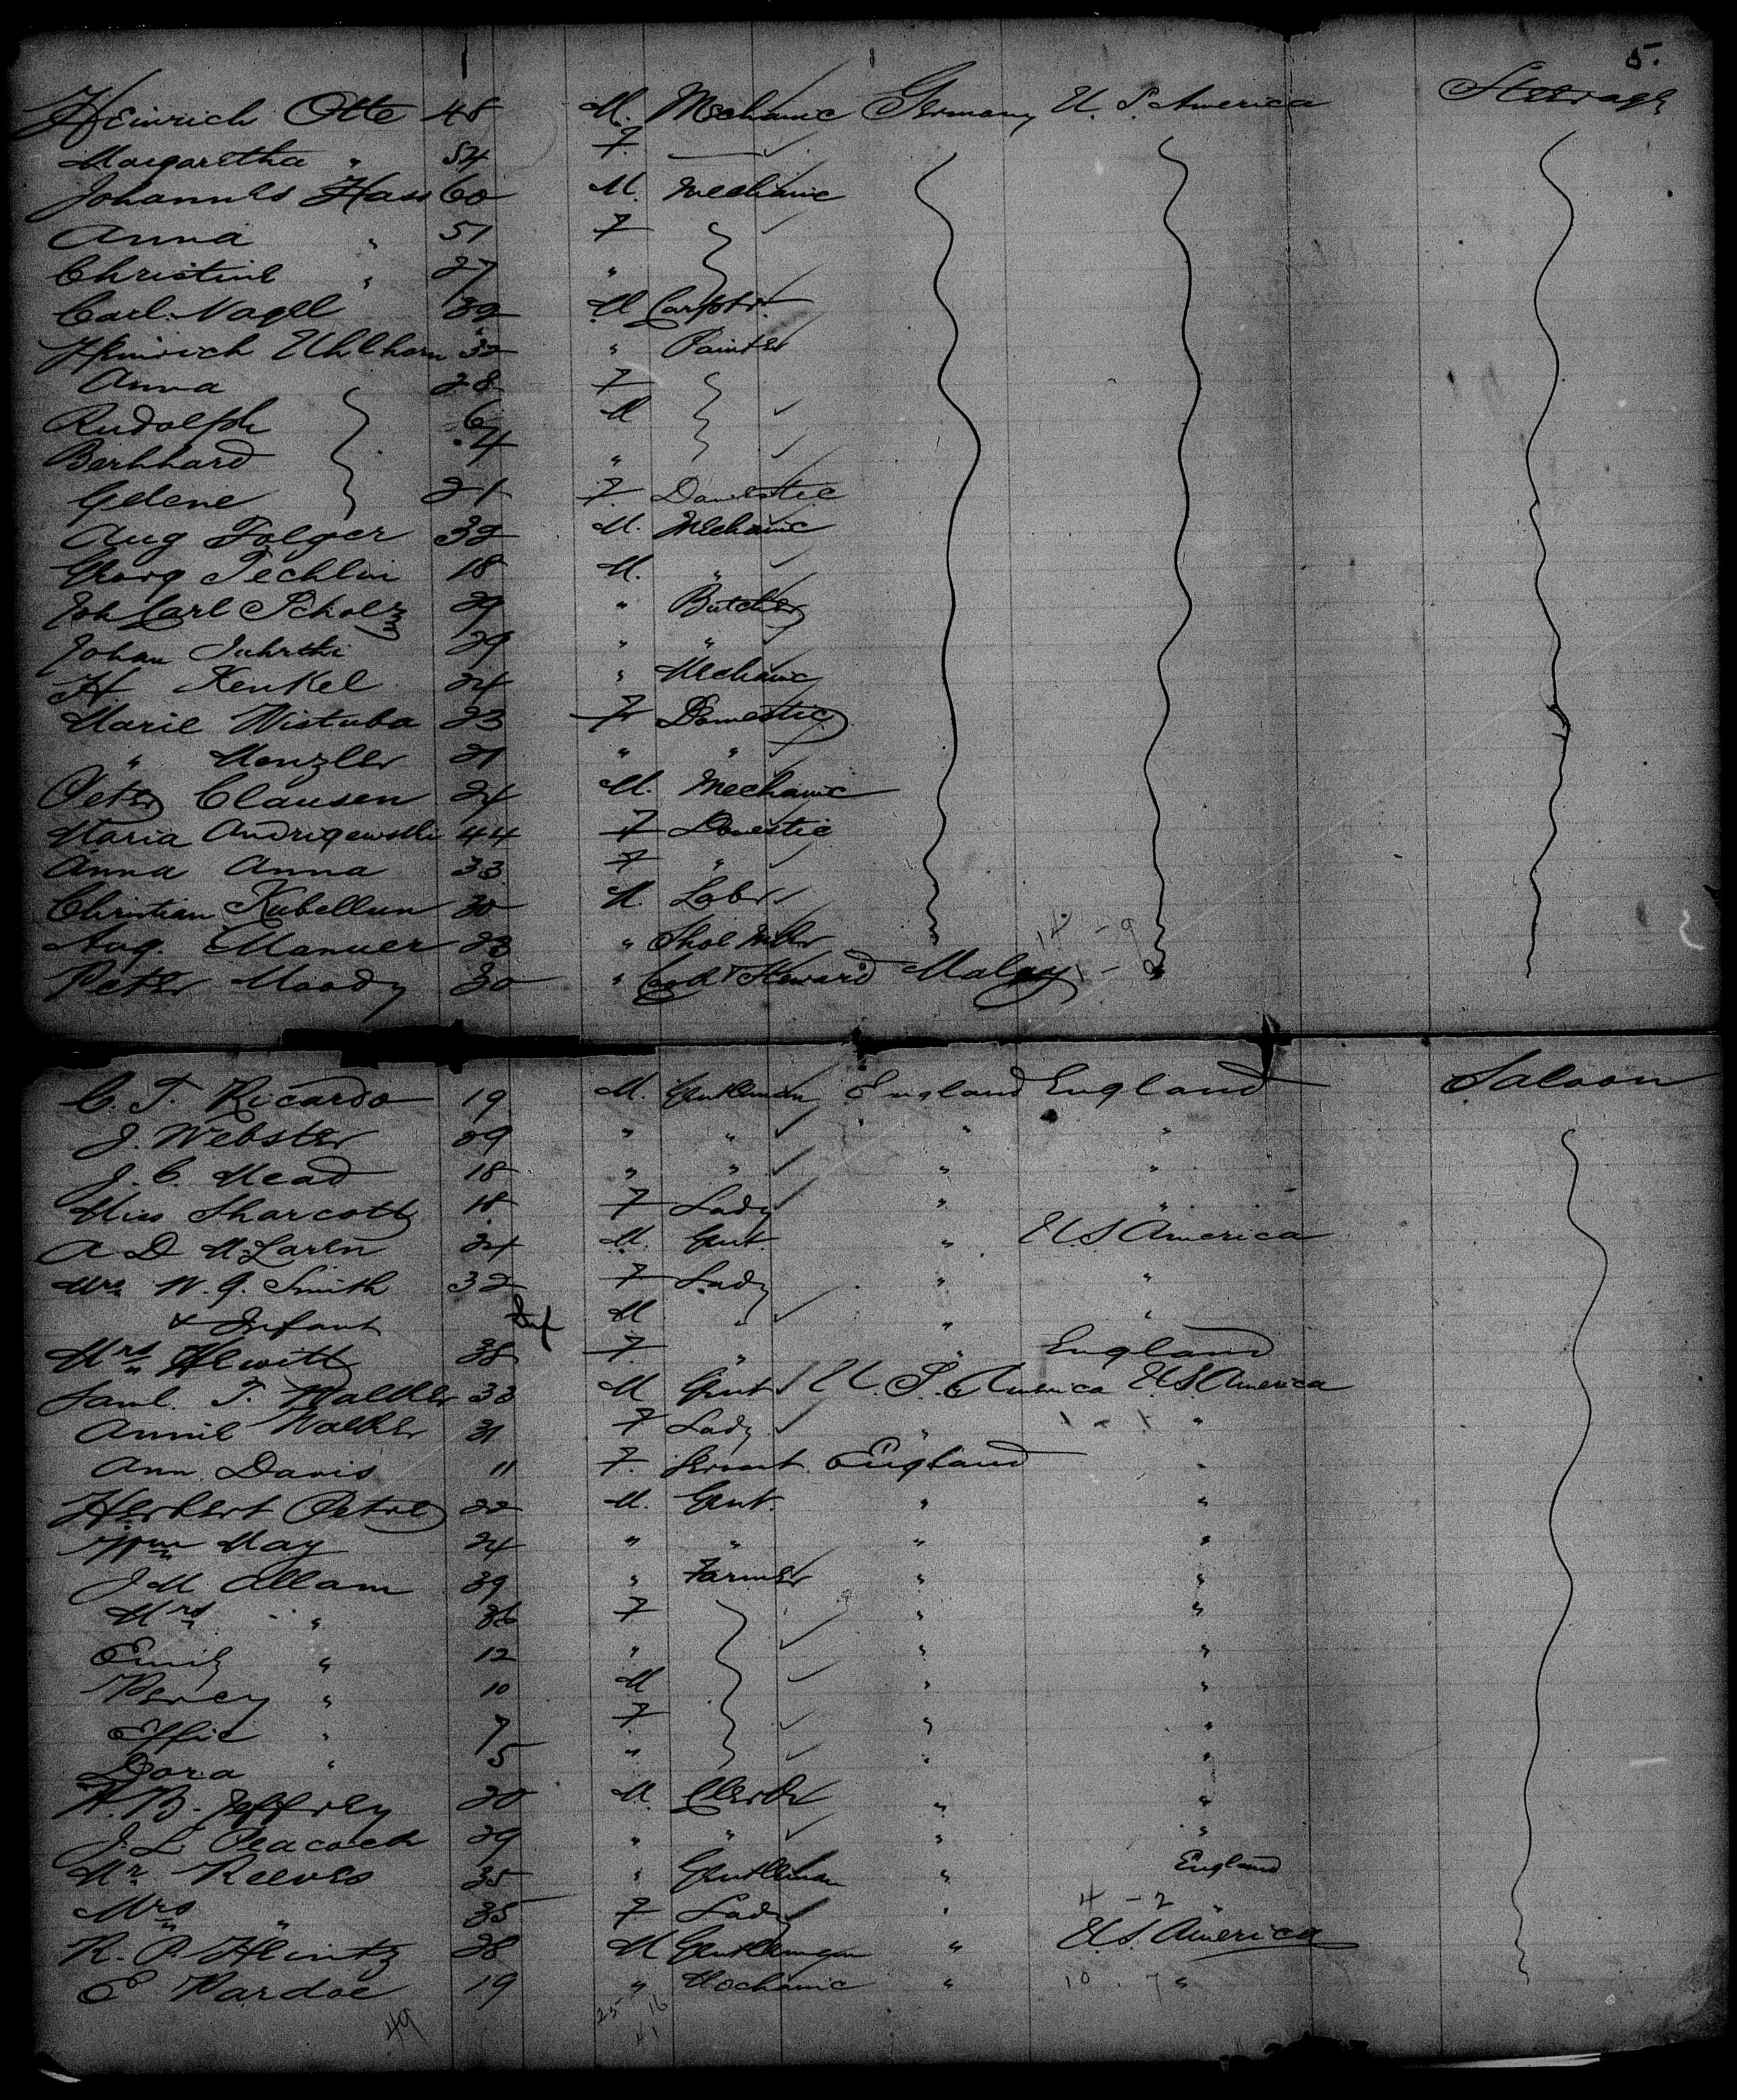 5.
Heinrich Otte 48 M. Mechanic Germany U. S. America Steerage
Margaretha " 54 F.
Johannes Hass 60 M. Mechanic
Anna " 51 F
Christine " 27 "
Carl Nagel 39 M Carptr.
Heinrich Uhlhorn 32 " Painter
Anna 28 F
Rudolph 6 M
Bernhard 4 "
Gelene 21 F Domestic
Aug Folger 32 M. Mechanic
Georg Techlin 18 M. "
Joh Carl Scholz 29 " Butcher
Johan 29 " "
H Kenkel 24 " Mechanic
Marie Wistuba 23 F Domestic
" Menzler 21 " "
Peter Clausen 24 M. Mechanic
Maria 44 F Domestic
Anna Anna 33 F "
Christian Kubellun 30 M. Labr
Aug. Manuer 23 " Shoe Mkr 14 - 9
Peter Moody 30 " Cook & Steward Malay 1 -
C. T. Ricardo 19 M. Gentleman England England Saloon
J. Webster 29 " " " "
J. C. Mead 18 " " " "
Miss Sharcott 18 F Lady " "
A D McLaren 24 M. Gent. " U.S America
Mrs. W. G. Smith 32 F Lady " "
& Infant Inf M " " "
Mrs. Hewitt 38 F " " England
Saml. T. Walker 33 M Gent U. S. America U.S America
Annie Walker 31 F Lady " "
Ann Davis 11 F. Servant England "
Herbert Petre 22 M. Gent. " "
Wm May 24 " " " "
J M Allam 39 " Farmer " "
Mrs " 36 F " "
Emily " 12 " " "
Percy " 10 M " "
Effie " 7 F " "
Dora " 5 " " "
W. B. Jeffrey 20 M. Clerk " "
J. L. Peacock 29 " " " "
Mr. Reeves 35 " Gentleman " England
Mrs " 35 F Lady " 4 - 2 "
R. P. Heintz 28 M Gentleman " U.S. America
E Pardoe 19 " Mechanic " 10 . 7 "
49 25 16
41